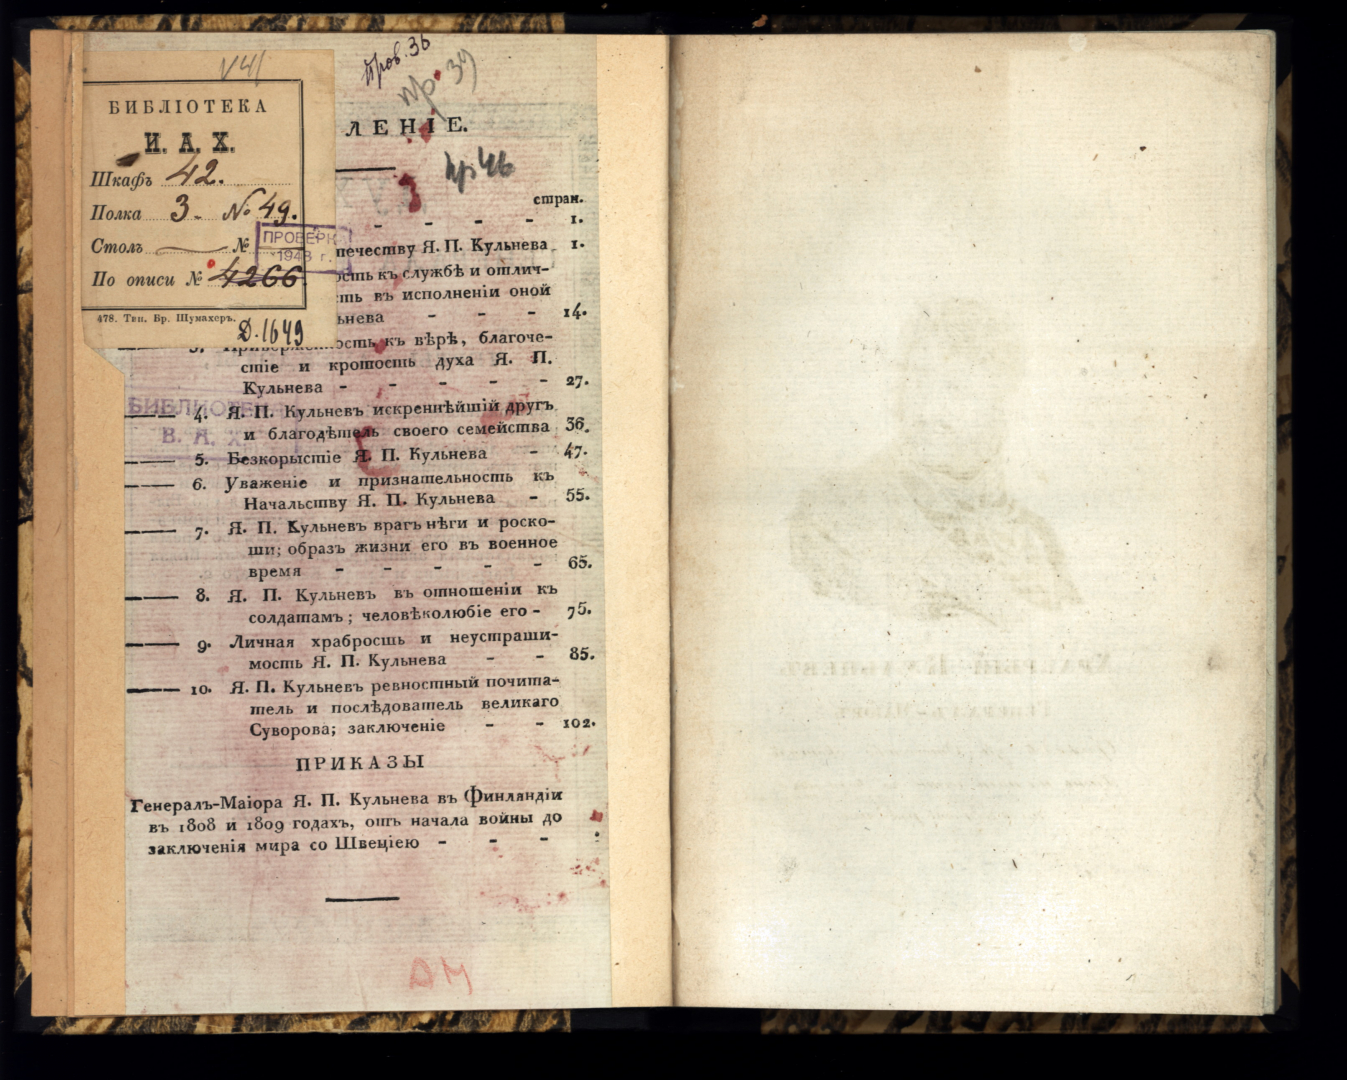 Пров. 36
пр. 39
V 4/
БИБЛІОТЕКА
И. А. Х.
Шкафъ 42.
Полка 3. № 49.
Столъ №
По описи № 4266
478. Тип. Бр. Шумахеръ.
Д. 1649
ПРОВЕРКА
1948 г.
ЛЕНІЕ.
пр 46
стран.
- - - - 1.
печеству Я. П. Кульнева - 1.
ость къ службѣ и отлич-
ть въ исполненіи оной
ьнева - - - 14.
3. Приверженность къ вѣрѣ, благоче-
стіе и кротость духа Я. П.
Кульнева - - - - - 27.
БИБЛИОТЕКА
В. А. Х.
4. Я. П. Кульневъ искреннѣйшій другъ
и благодѣтель своего семейства 36.
5. Безкорыстіе Я. П. Кульнева - 47.
6. Уваженіе и признательность къ
Начальству Я. П. Кульнева - 55.
7. Я. П. Кульневъ врагъ нѣги и роско-
ши; образъ жизни его въ военное
время - - - - - 65.
8. Я. П. Кульневъ въ отношеніи къ
солдатамъ; человѣколюбіе его - 75.
9. Личная храбрость и неустраши-
мость Я. П. Кульнева - - 85.
10. Я. П. Кульневъ ревностный почита-
тель и послѣдователь великаго
Суворова; заключеніе - - 102.
ПРИКАЗЫ
Генералъ-Маіора Я. П. Кульнева въ Финляндіи
въ 1808 и 1809 годахъ, отъ начала войны до
заключенія мира со Швеціею - - -
ДМ